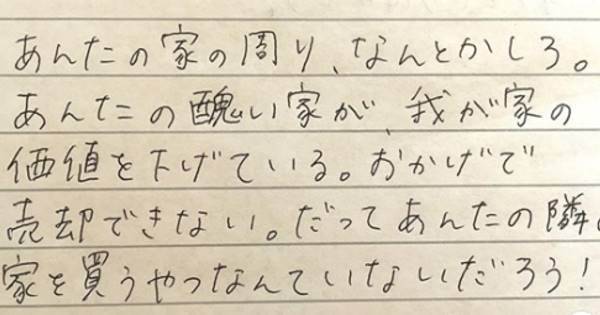 あんたの家の周り、なんとかしろ。
あんたの醜い家が、我が家の
価値を下げている。おかげで
売却できない。だってあんたの隣
家を買うやつなんていないだろう!